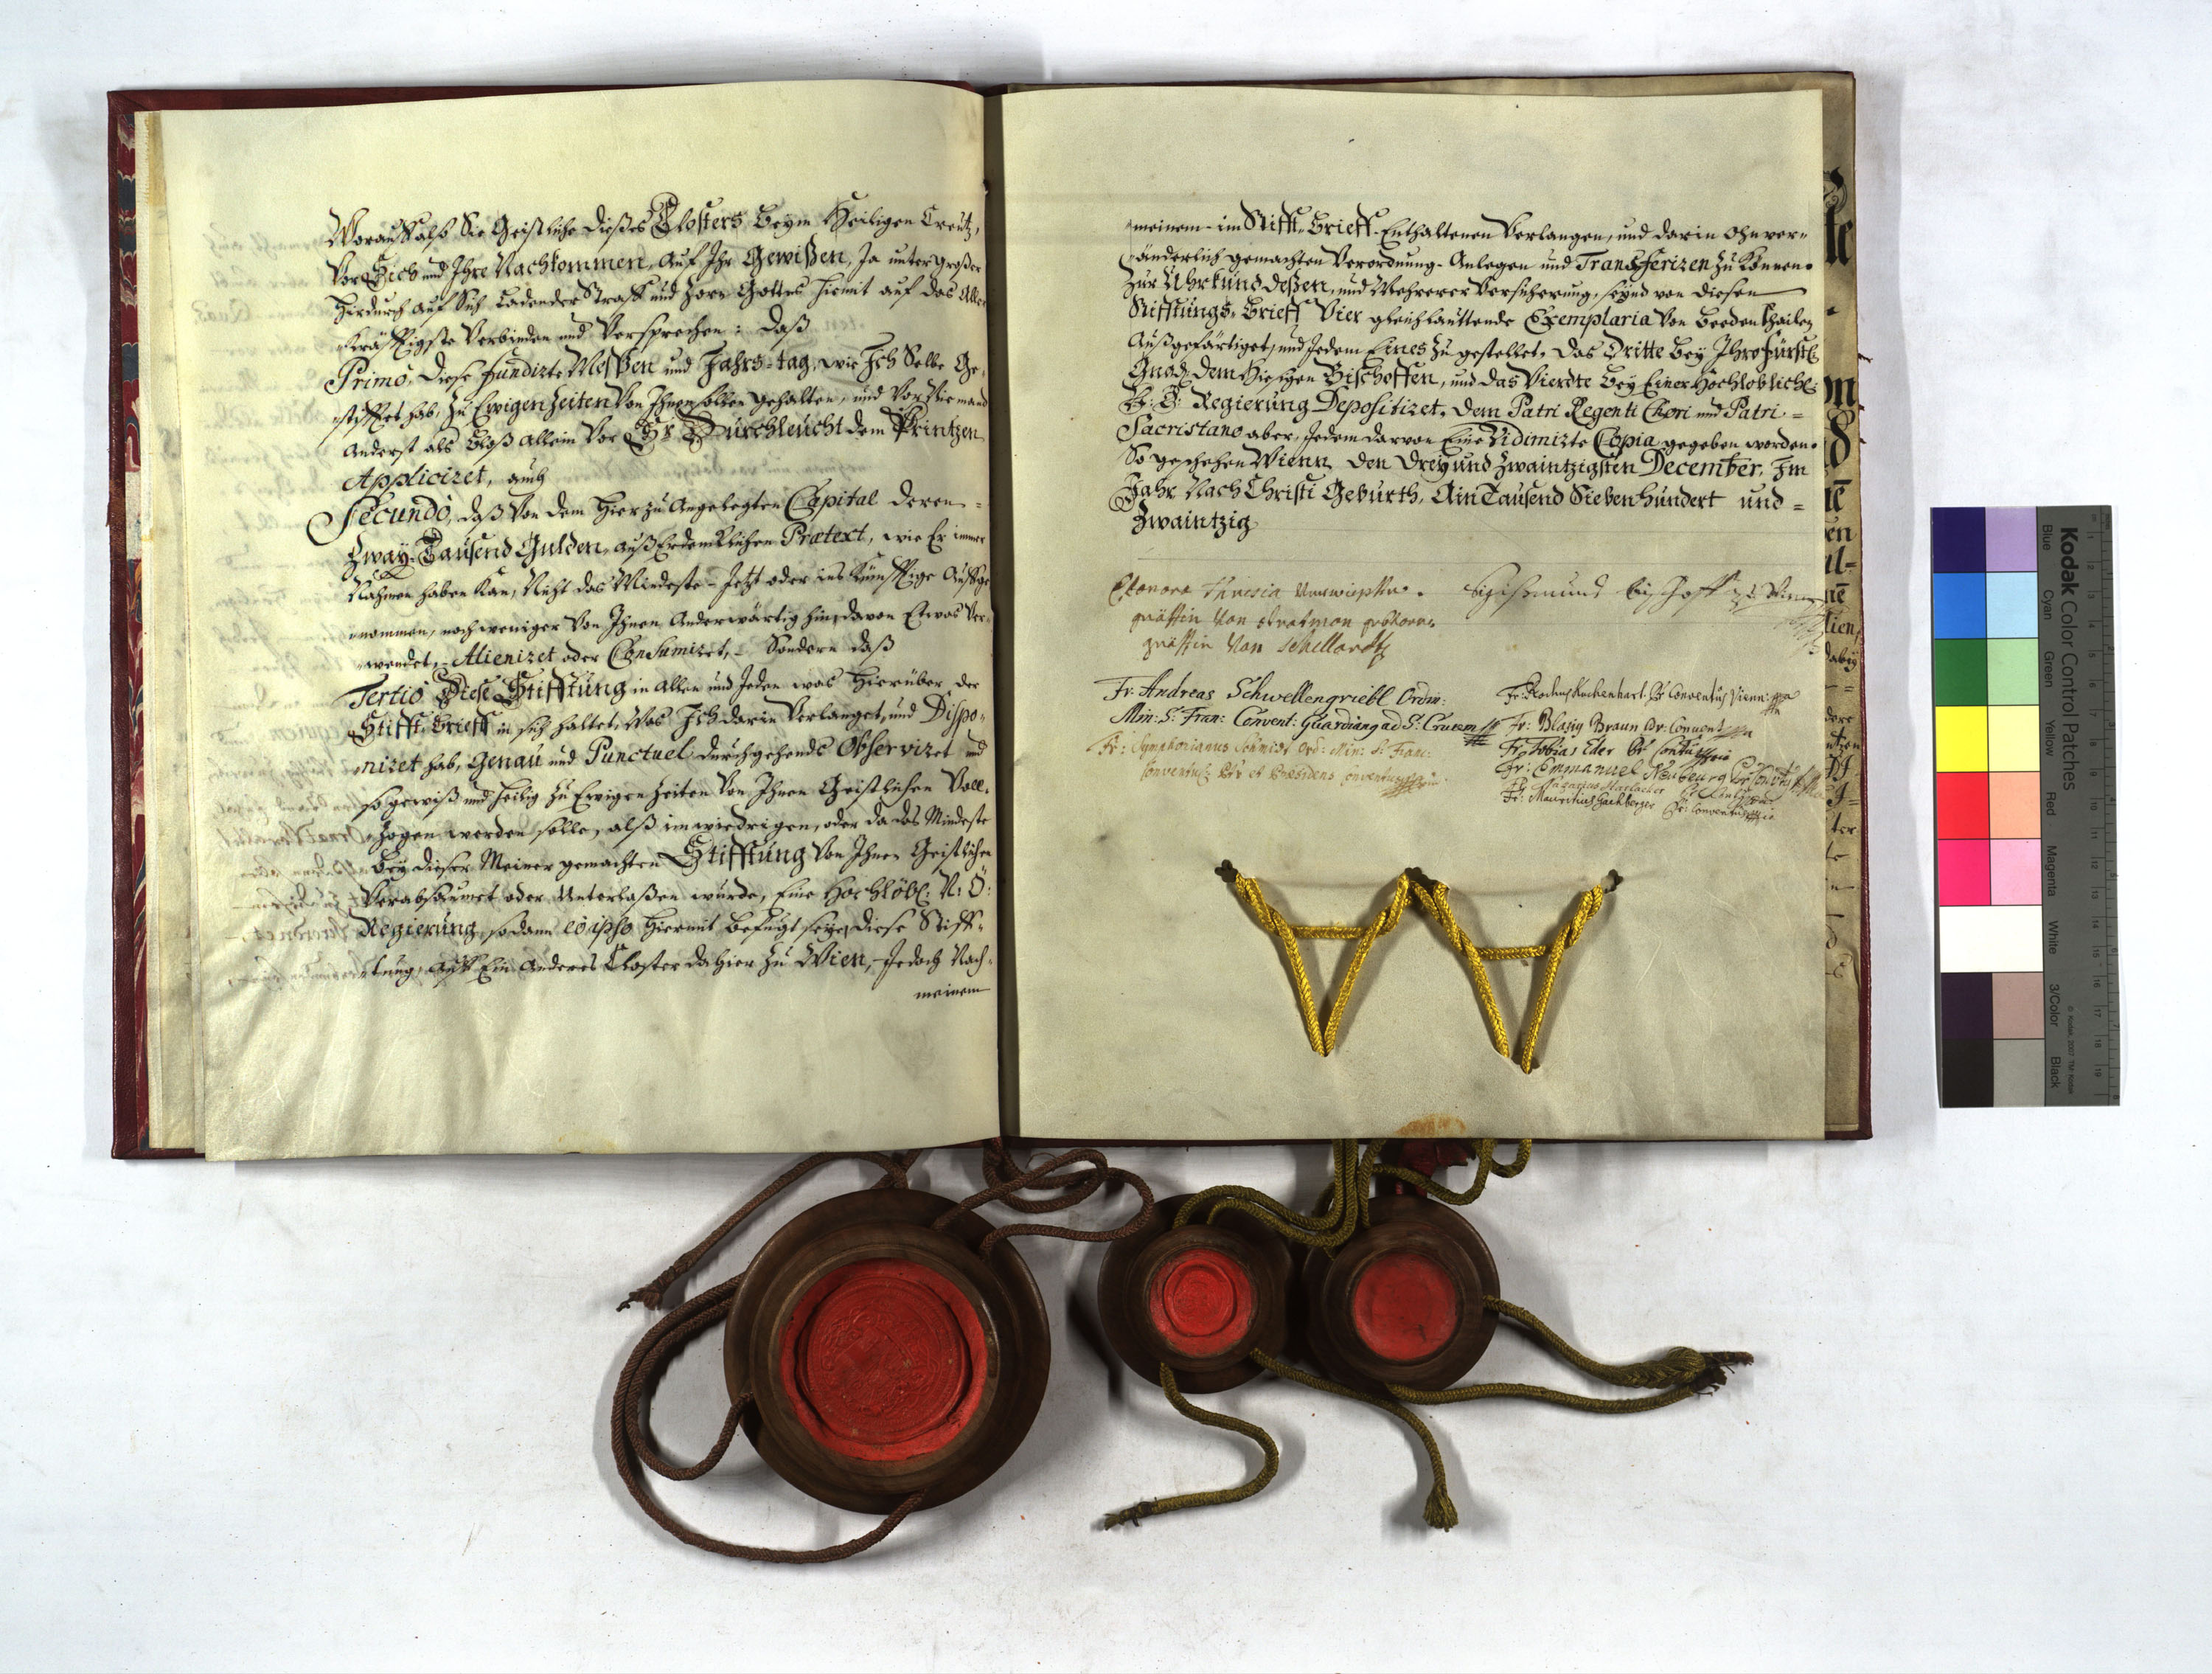 Worauf alß Sie Geistliche dießes Closters Beym Heiligen Creutz,
Vor Sich und Ihre Nachkommen, Auf Ihr Gewißen, Ja unter großer
hirdurch auf Sich Ladender Straff und Zorn Gottes hiemit auf das Aller
kräfftigste Verbinden und Versprechen: Daß
Primò, Diese fundirte Messen und Jahrs=tag, wie Ich Selbe Ge-
stifftet hab, zu Ewigen Zeiten Von Ihnen sollen gehalten, und Vor Niemand
Anderst als Bloß allein Vor Sr Dürchleücht dem Printzen
Appliciret, auch
Secundò, daß Von dem Hierzu Angelegten Capital deren =
Zway-Tausend Gulden, auß Erdencklichen Prætext, wie Er immer
Nahmen haben Kan, Nicht das Mindeste - Jetzt oder ins Künfftige Aufge
nommen, noch weniger Von Ihnen Anderwärtig hin, davon Etwas Ver-
wendet, - Alieniret oder Consumiret, - Sondern daß
Tertiò Diese Stifftung in Allen und Jeden was Hierüber der
Stifft-Brieff in sich haltet, Was Ich darin Verlanget, und Dispo-
niret hab, Genau und Punctuel durchgehends Observiret und
so gewiß und heilig zu Ewigen Zeiten Von Ihnen Geistlichen Voll-
zogen werden solle, alß im wiedrigen, oder da das Mindeste
bey dieser Meiner gemachten Stifftung Von Ihnen Geistlichen
Verabsaumet oder Unterlaßen wurde, Eine Hochlöbl: N: Ö:
Regierung, sodann eò ipso hiermit befugt seye, diese Stiff-
tung, auff Ein Anderes Closter dahier zu Wien, - Jedoch Nach-
meinem
meinem - im Stifft-Brieff - Enthaltenen Verlangen, und darin ohnver-
änderlich gemachten Verordnung - Anlegen und Transferiren zu Können.
Zur Uhrkund deßen, und Mehrerer Versicherung, seynd von diesen
Stifftungs-Brieff Vier gleichlauttende Exemplaria Von Beeden theilen
Außgefärtiget, und Jedem Eines zu gestellet, das Dritte bey Ihro Fürstl:
Gnad: dem Hiesigen Bischoffen, und das Vierdte bey Einer Hochloblichl:
N: Ö: Regierung Depositiret, dem Patri Regenti Chori und Patri =
Sacristano aber, Jedem darvon Eine Vidimirte Copia gegeben worden.
So geschehen Wienn den Drey und Zwaintzigsten December, Im
Jahr Nach Christi Gebürth, Ain Tausend Sieben Hundert und =
Zwaintzig
Eleonora Theresia
gräffin Von stratman gebohrne
gräffin Von Schellardt
Sigismund bischoff zu Wienn
Fr: Andreas Schwellengriebl Ordin:
Min: S: Fran: Convent: Guardian ad S: Crucem
Fr: Symphorianus Schmidt Ord: Min: S: Fran:
Convent: et Præsidens Conventus
Fr: Kuchenhart Conventus Vienn:
Fr: Blasig Braun Convent
Fr: Tobias Eder
Fr: Emmanuel Neuburg
Fr: Mauritius Conventus
Kodak Color Control Patches
Blue Cyan Green Yellow Red Magenta White 3/Color Black
© Kodak, 2007 TM: Kodak